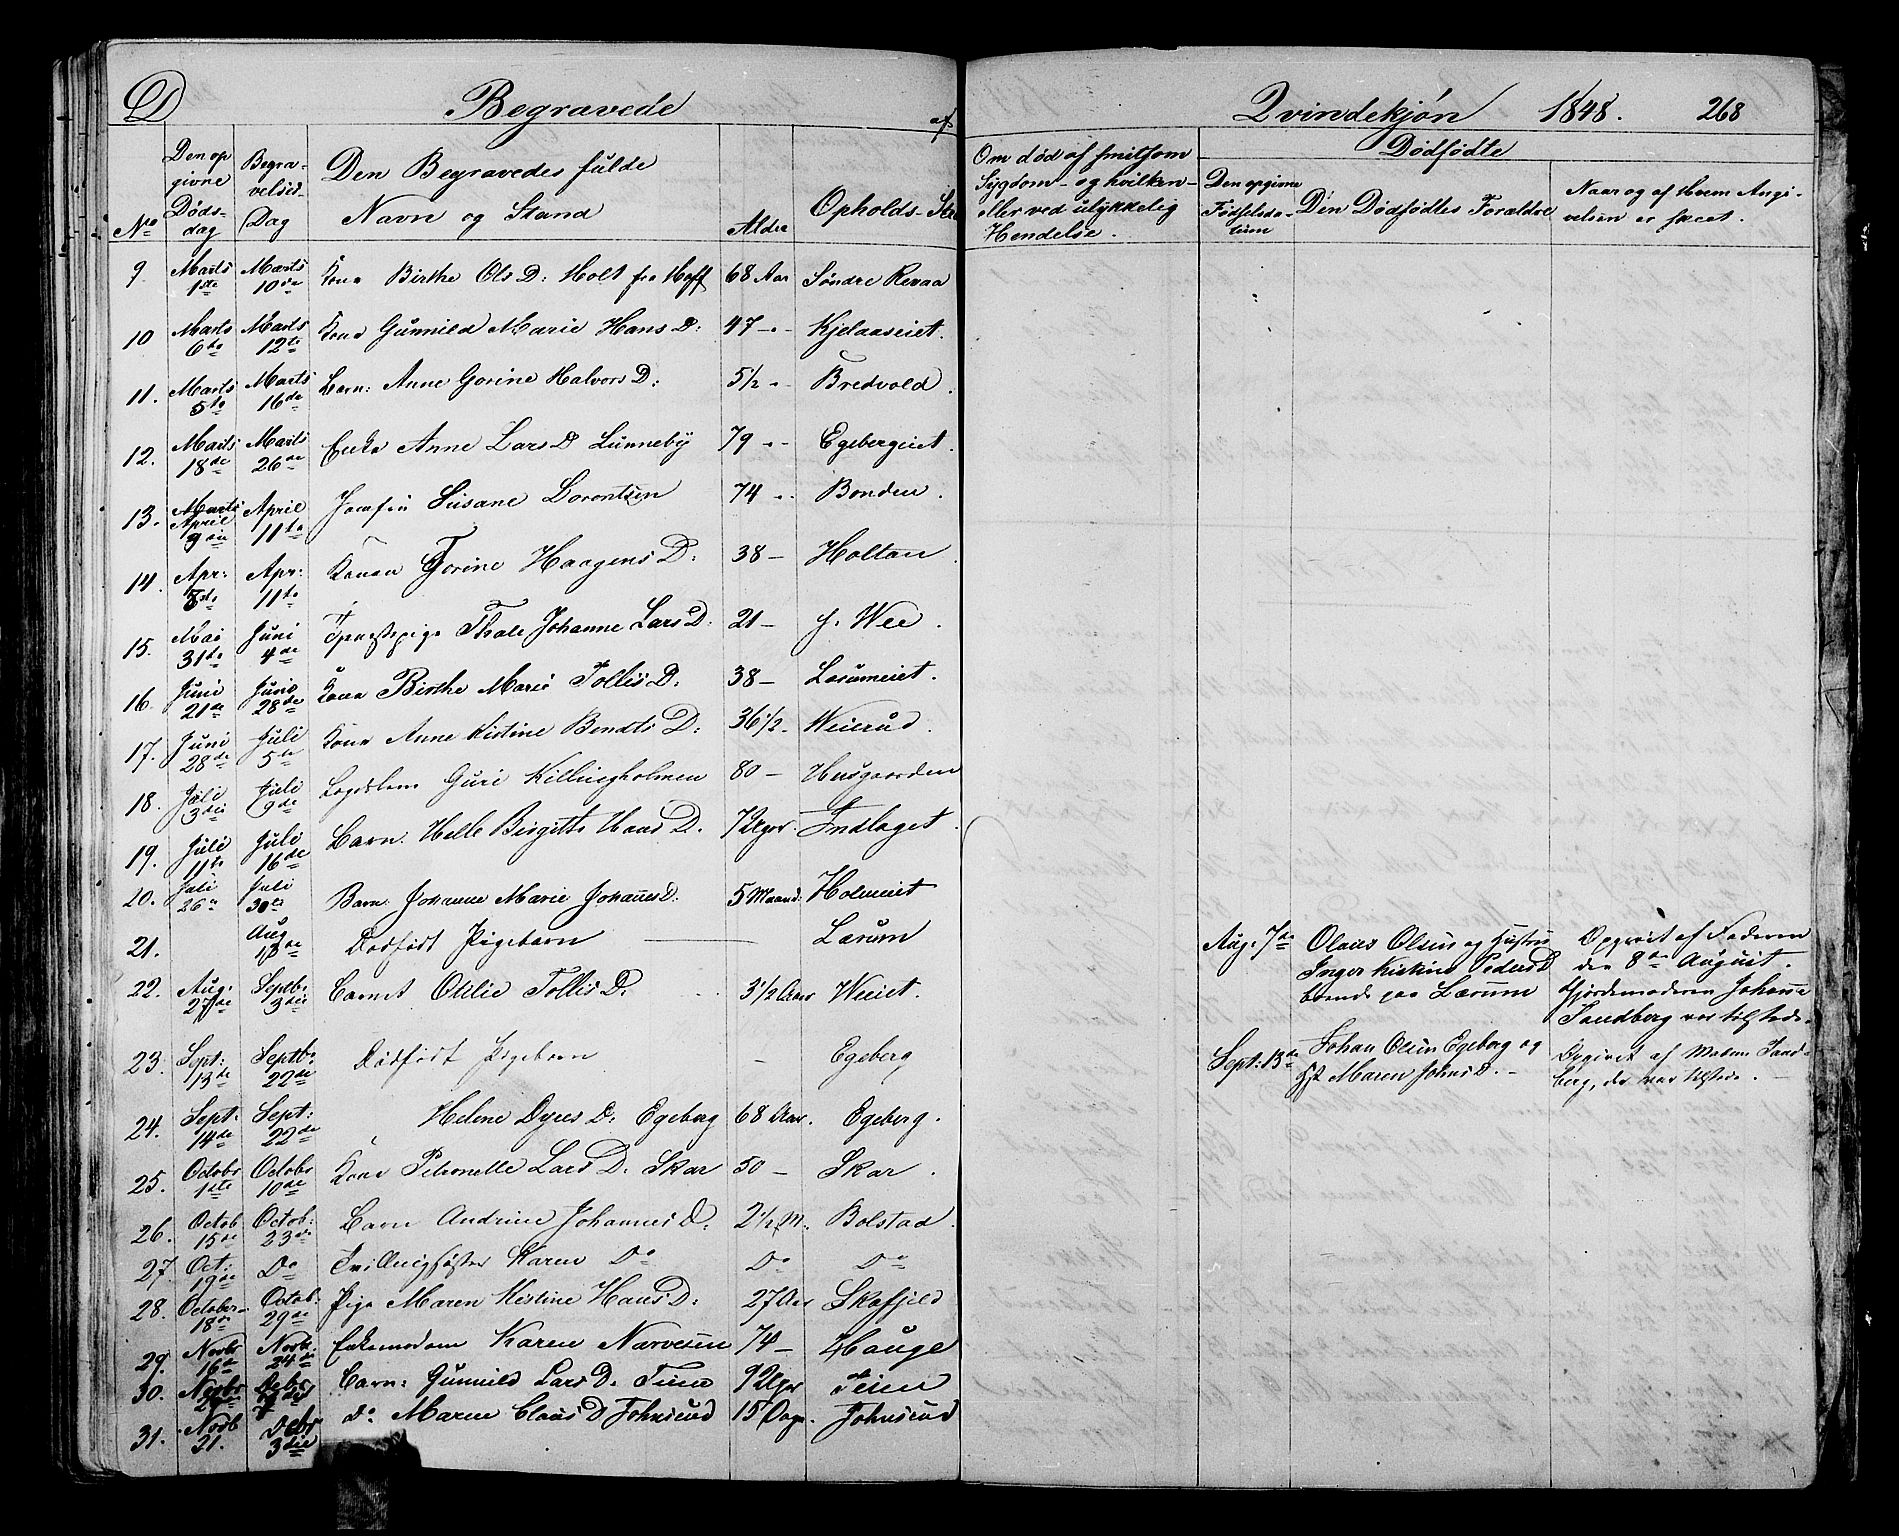 D Begravede af Qvindekjøn 1848. 268
No Den opgivne Dødsdag Begravelses Dag Den Begravedes fulde Navn og Stand Alder Opholds-Ste
Om død af smitsom Sygdom - og hvilken - eller ved ulykkelig Hendelse.
Dødfødte
Den opgivne Fødselsdatum Den Dødfødtes Forældre Naar og af Hvem Angivelsen er skeet.
9 Marts 1de Marts 10de Kone Birthe Ols D: Holt fra Hoff 68 Aar Søndre Revaa
10 Marts 6te Marts 12te Kone Gunnild Marie Hans D: 47 - Kjelaaseiet.
11. Marts 5te Marts 16de Barn: Anne Gorine Halvors D: 5 1/2 - Bredvold.
12. Marts 18de Marts 26de Enke Anne Lars D Lunneby 79 - Egebergeiet.
13. April 9de April 11te Jomfru Susane Lorentsen 74 - Bonden.
14. Apr: Apr: 11te Konen Gorine Haagens D: 38 - Holtan.
15. Mai 31te Juni 4de Tjenestepige Thale Johanne Lars D. 21 - Wee.
16. Juni 21de Juni 28de Kone Birthe Marie Tollis D: 38 - Lærumeiet.
17. Juni 28de Juli 5te Kone Anne Kistine Bendts D: 36 1/2 - Weierud.
18. Juli 3die Juli 9de Lægdslem Guri Killingholmen 80 - Husgaarden
19. Juli 11te Juli 16de Barn: Helle Birgitte Hans D. 7 Uger. Indlaget.
20. Juli 26de Juli 30te Barn: Johanne Marie Johannes D: 5 Maand: Holmeiet
21. Aug 13de Dødfødt Pigebarn Lærum
Aug. 7de Olaus Olsen og Hustru Inger Kistine Peders D boende paa Lærum
Opgivet af Faderen den 8de August. Gjordemoderen Johanne Sandberg var tilstede.
22. Aug: 27de Septb. 3die Barnet Otilie Tollis D. 3 1/2 Aar Weeiet.
23. Sept: 13de Septb. 22de Dødfødt Pigebarn - Egeberg
Sept: 13de Johan Olsen Egeberg og Hst Maren Johns D. -
Opgivet af Madam Sandberg, der var tilstede. -
24. Sept: 14de Sept: 22de Helene Dyres D: Egeberg 68 Aar. Egeberg.
25. Octobr 1ste Octobr 10de Kone Petronelle Lars D. Skar 50 - Skar.
26. Octob 15de Octob: 23de Barn Andrine Johannes D. 2 1/2 M. Bolstad.
27. Oct: 19de Do Tvillingsøster Karen Do Do Do
28. October 18de Octob: 29de Pige Maren Kistine Hans D: 27 Aar Skafjeld
29. Novbr 16de Novbr. 24de Enkemadam Karen Narvesen 74 - Hauge
30. Novbr Debr. Barn: Gunnild Lars D. Teien 9 Uger Teien
31. Novb 21. Debr 3die do Maren Claus D Johnsrud 15 Dage. Johnsrud